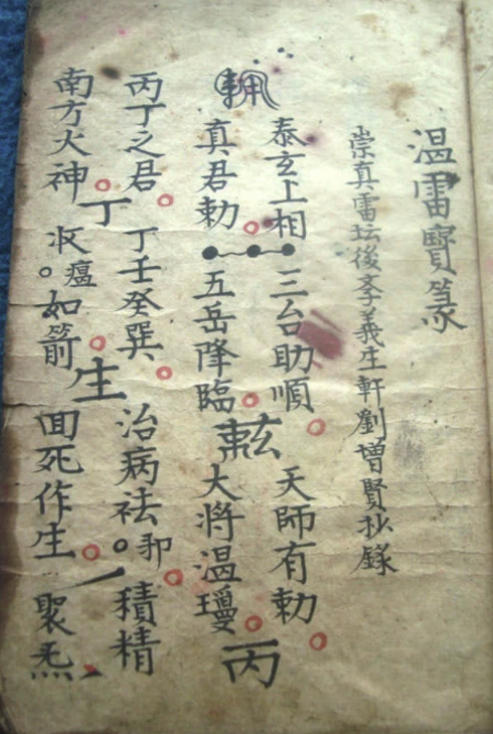 温雷寳篆
崇真雷坛後孝義生軒劉增賢抄錄
泰玄上相 三台助順 天師有勅
真君勅 五岳降臨 大将温瓊
丙
丙丁之君 丁壬癸巽 治病祛邪 積精
丁 生
南方火神 收瘟如箭 回死作生 聚炁